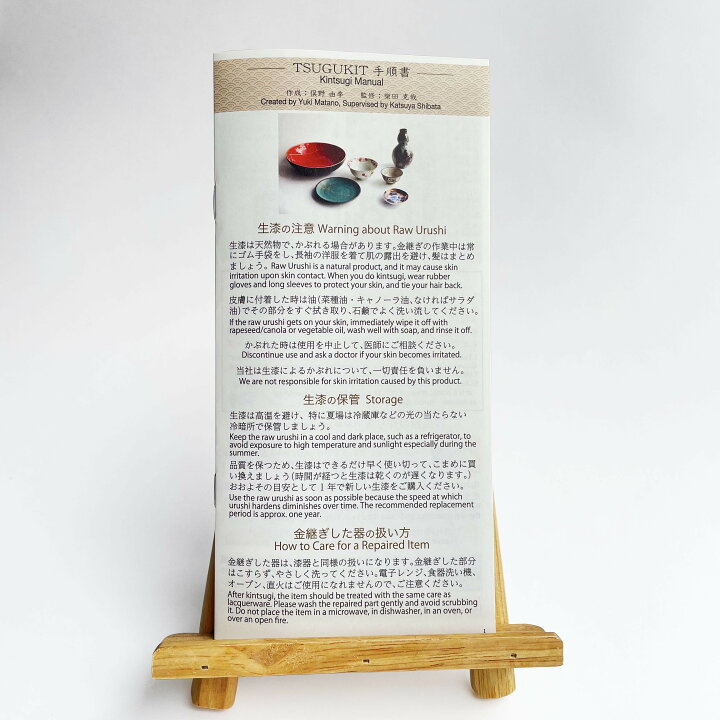 TSUGUKIT 手順書
Kintsugi Manual
作成：俣野 由季　監修：柴田 克哉
Created by Yuki Matano, Supervised by Katsuya Shibata
生漆の注意 Warning about Raw Urushi
生漆は天然物で、かぶれる場合があります。金継ぎの作業中は常
にゴム手袋をし、長袖の洋服を着て肌の露出を避け、髪はまとめ
ましょう。Raw Urushi is a natural product, and it may cause skin
irritation upon skin contact. When you do kintsugi, wear rubber
gloves and long sleeves to protect your skin, and tie your hair back.
皮膚に付着した時は油（菜種油・キャノーラ油、なければサラダ
油）でその部分をすぐ拭き取り、石鹸でよく洗い流してください。
If the raw urushi gets on your skin, immediately wipe it off with
rapeseed/canola or vegetable oil, wash well with soap, and rinse it off.
かぶれた時は使用を中止して、医師にご相談ください。
Discontinue use and ask a doctor if your skin becomes irritated.
当社は生漆によるかぶれについて、一切責任を負いません。
We are not responsible for skin irritation caused by this product.
生漆の保管 Storage
生漆は高温を避け、特に夏場は冷蔵庫などの光の当たらない
冷暗所で保管しましょう。
Keep the raw urushi in a cool and dark place, such as a refrigerator, to
avoid exposure to high temperature and sunlight especially during the
summer.
品質を保つため、生漆はできるだけ早く使い切って、こまめに買
い換えましょう（時間が経つと生漆は乾くのが遅くなります。）
おおよその目安として1年で新しい生漆をご購入ください。
Use the raw urushi as soon as possible because the speed at which
urushi hardens diminishes over time. The recommended replacement
period is approx. one year.
金継ぎした器の扱い方
How to Care for a Repaired Item
金継ぎした器は、漆器と同様の扱いになります。金継ぎした部分
はこすらず、やさしく洗ってください。電子レンジ、食器洗い機、
オーブン、直火はご使用になれませんので、ご注意ください。
After kintsugi, the item should be treated with the same care as
lacquerware. Please wash the repaired part gently and avoid scrubbing
it. Do not place the item in a microwave, in dishwasher, in an oven, or
over an open fire.
1